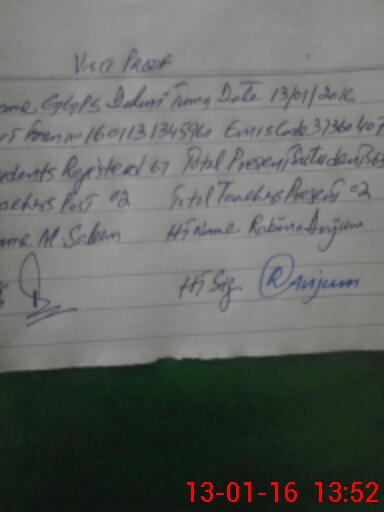 VISIT PROOF
ame GGPS Dahmi Tunng Date 13/01/2016
rt Form no 160113134596 EmisCode 37360407
udents Registerd 67 Total Present Students 63
achers Post 02 Total Teachers Present 02
ame M. Saleem HT Name Rabina Anjum
HT Sig R Anjum
13-01-16 13:52